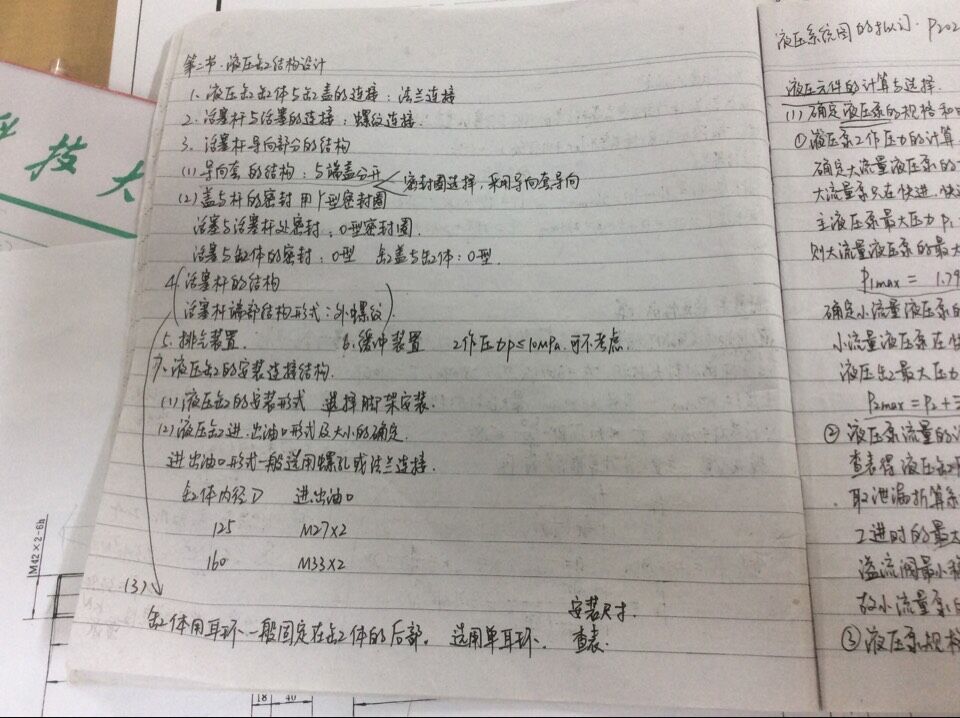 第二节.液压缸结构设计
1、液压缸缸体与缸盖的连接：法兰连接
2.活塞杆与活塞的连接：螺纹连接.
3.活塞杆导向部分的结构
(1)导向套的结构：与端盖分开
密封圈选择，采用导向套导向
(2)盖与杆的密封用Y型密封圈
活塞与活塞杆处密封：O型密封圈.
活塞与缸体的密封：O型 缸盖与缸体：O型.
4.活塞杆的结构
活塞杆端部结构形式：外螺纹
5.排气装置. 6.缓冲装置 工作压力p≤10MPa.可不考虑.
7、液压缸的安装连接结构.
(1)液压缸的安装形式 选择脚架安装.
(2)液压缸进.出油口形式及大小的确定.
进出油口形式一般选用螺孔或法兰连接.
缸体内径D 进出油口
125 M27×2
160 M33×2
(3)
缸体用耳环一般固定在缸体的后部。 选用单耳环.
安装尺寸.
查表.
液压系统图的拟订.
液压元件的计算与选择.
(1)确定液压泵的规格和
①液压泵工作压力的计算.
确定大流量液压泵的
大流量泵只在快进.快
主液压泵最大压力P1
则大流量液压泵的最大
P1max = 1.79
确定小流量液压泵的
小流量液压泵在
液压缸最大压力
P2max = P2 +
②液压泵流量的
查表得液压缸
取泄漏折算系
工进时的最大
溢流阀最小稳
故小流量泵的
③液压泵规格
科技大
M42×2-6h
18 40